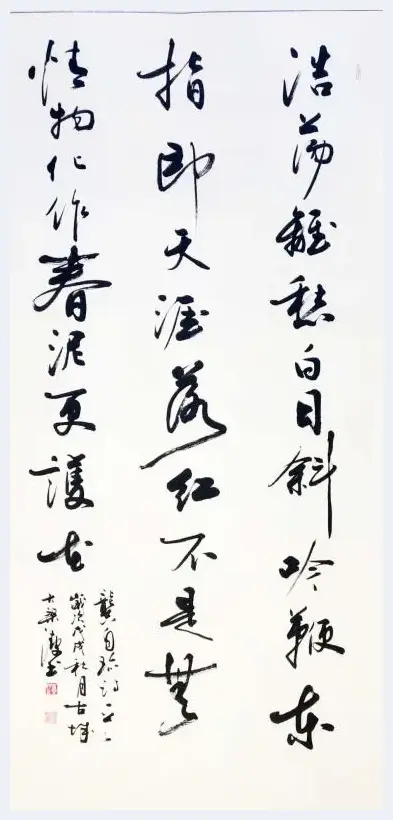 浩荡離愁白日斜吟鞭东
指即天涯落红不是無
情物化作春泥更護花
龔自珍诗一首
歲次戊戌秋月古城